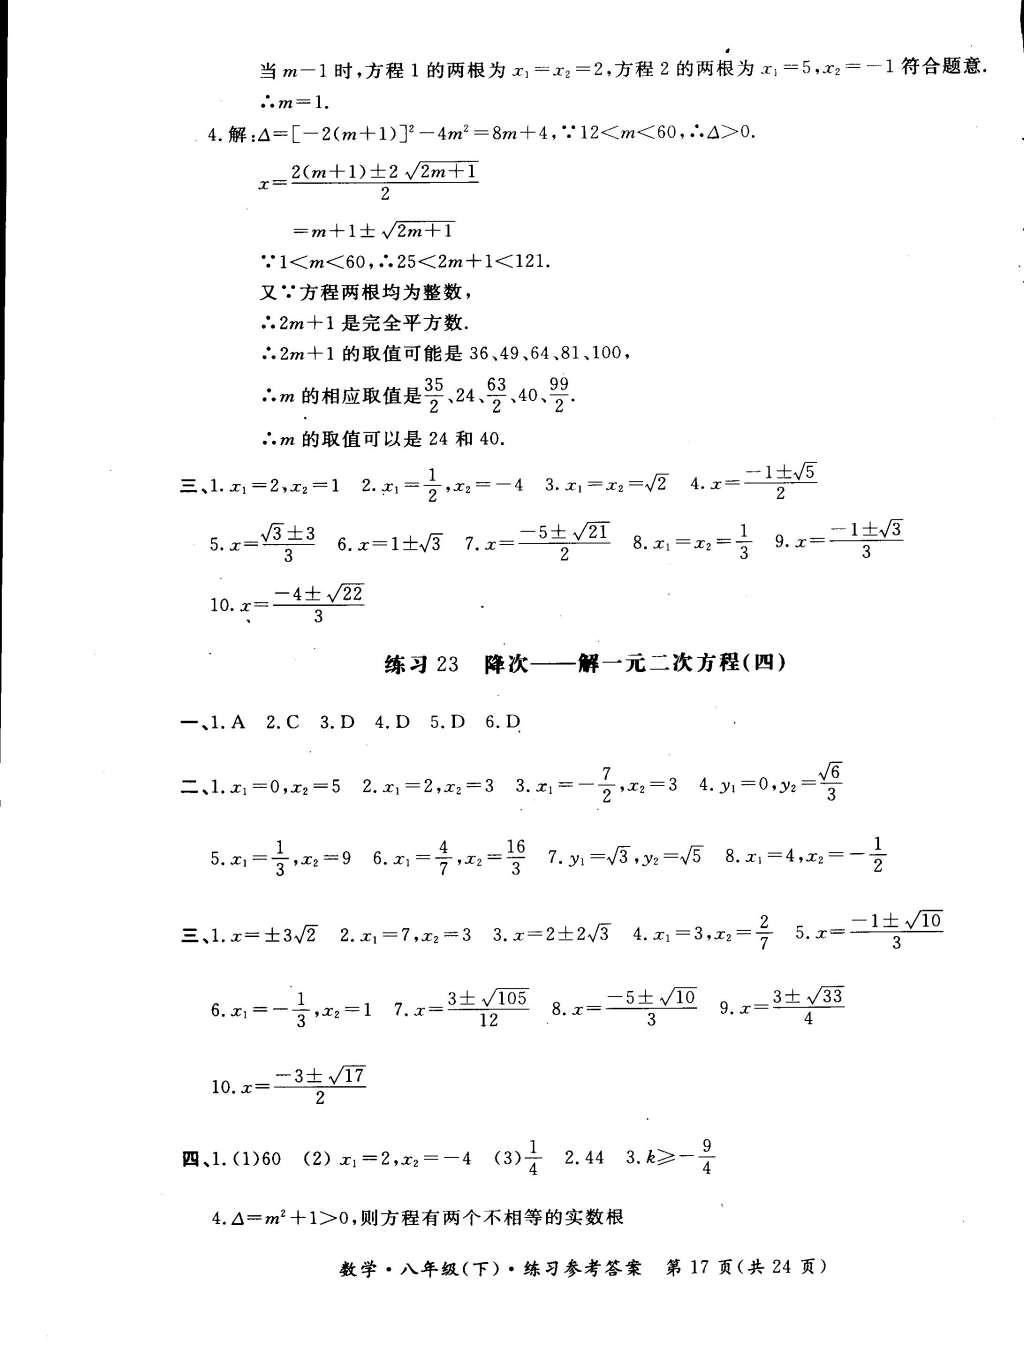 当 m－1 时,方程 1 的两根为 x₁＝x₂＝2,方程 2 的两根为 x₁＝5,x₂＝－1 符合题意.
∴m＝1.
4.解:Δ＝[－2(m＋1)]²－4m²＝8m＋4,∵12＜m＜60,∴Δ＞0.
x＝(2(m＋1)±2√(2m＋1))/2
＝m＋1±√(2m＋1)
∵1＜m＜60,∴25＜2m＋1＜121.
又∵方程两根均为整数,
∴2m＋1 是完全平方数.
∴2m＋1 的取值可能是 36、49、64、81、100,
∴m 的相应取值是35/2、24、63/2、40、99/2.
∴m 的取值可以是 24 和 40.
三、1.x₁＝2,x₂＝1 2.x₁＝1/2,x₂＝－4 3.x₁＝x₂＝√2 4.x＝(－1±√5)/2
5.x＝(√3±3)/3 6.x＝1±√3 7.x＝(－5±√21)/2 8.x₁＝x₂＝1/3 9.x＝(－1±√3)/3
10.x＝(－4±√22)/3
练习 23 降次——解一元二次方程(四)
一、1.A 2.C 3.D 4.D 5.D 6.D
二、1.x₁＝0,x₂＝5 2.x₁＝2,x₂＝3 3.x₁＝－7/2,x₂＝3 4.y₁＝0,y₂＝√6/3
5.x₁＝1/3,x₂＝9 6.x₁＝4/7,x₂＝16/3 7.y₁＝√3,y₂＝√5 8.x₁＝4,x₂＝－1/2
三、1.x＝±3√2 2.x₁＝7,x₂＝3 3.x＝2±2√3 4.x₁＝3,x₂＝2/7 5.x＝(－1±√10)/3
6.x₁＝－1/3,x₂＝1 7.x＝(3±√105)/12 8.x＝(－5±√10)/3 9.x＝(3±√33)/4
10.x＝(－3±√17)/2
四、1.(1)60 (2) x₁＝2,x₂＝－4 (3)1/4 2.44 3.k≥－9/4
4.Δ＝m²＋1＞0,则方程有两个不相等的实数根
数学·八年级(下)·练习参考答案 第 17 页(共 24 页)